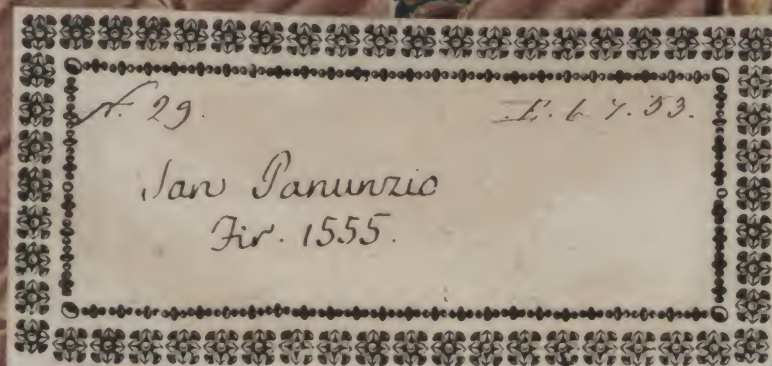 N. 29. E. 6. 7. 53.
San Panunzio
Fir. 1555.